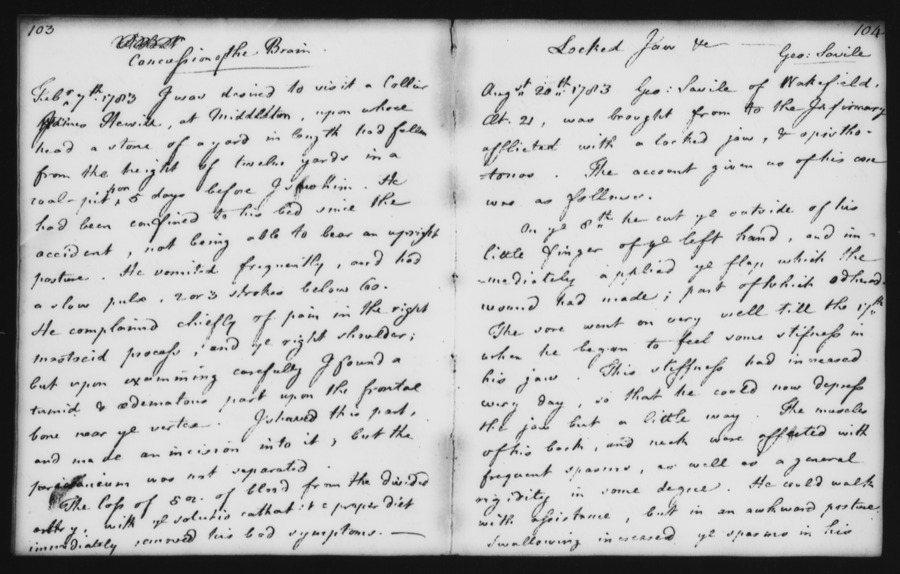 103
Concussion of the Brain.
Feby. 7th. 1783 I was desired to visit a Collier
James Hewitt, at Middleton, upon whose
head a stone of a yard in length had fallen
from the height of twelve yards in a
coal-pit, 5 days before I saw him. He
had been confined to his bed since the
accident, not being able to bear an upright
posture. He vomited frequently, and had
a slow pulse, 2 or 3 strokes below 60.
He complained chiefly of pain in the right
mastoid process, and ye right shoulder;
but upon examining carefully I found a
tumid & œdematous part upon the frontal
bone near ye vertex. I shaved this part,
and made an incision into it, but the
pericranium was not separated.
The loss of 5 oz. of blood from the divided
artery, with ye solutio cathart: & proper diet
immediately removed his bad symptoms.
104
Locked Jaw &c
Geo: Savile
Augst. 20th. 1783 Geo: Savile of Wakefield,
Æt. 21, was brought to the Infirmary
afflicted with a locked jaw, & opistho-
-tonos. The account given us of his case
was as follows.
On ye 8th he cut ye outside of his
little finger of ye left hand, and im-
-mediately applied ye flap which the
wound had made; part of which adhered.
The sore went on very well till the 17th.
when he began to feel some stifness in
his jaw. This stiffness had increased
every day, so that he could now depress
the jaw but a little way. The muscles
of his back, and neck were affected with
frequent spasms, as well as a general
rigidity in some degree. He could walk
with assistance, but in an awkward posture.
Swallowing increased ye spasms in his